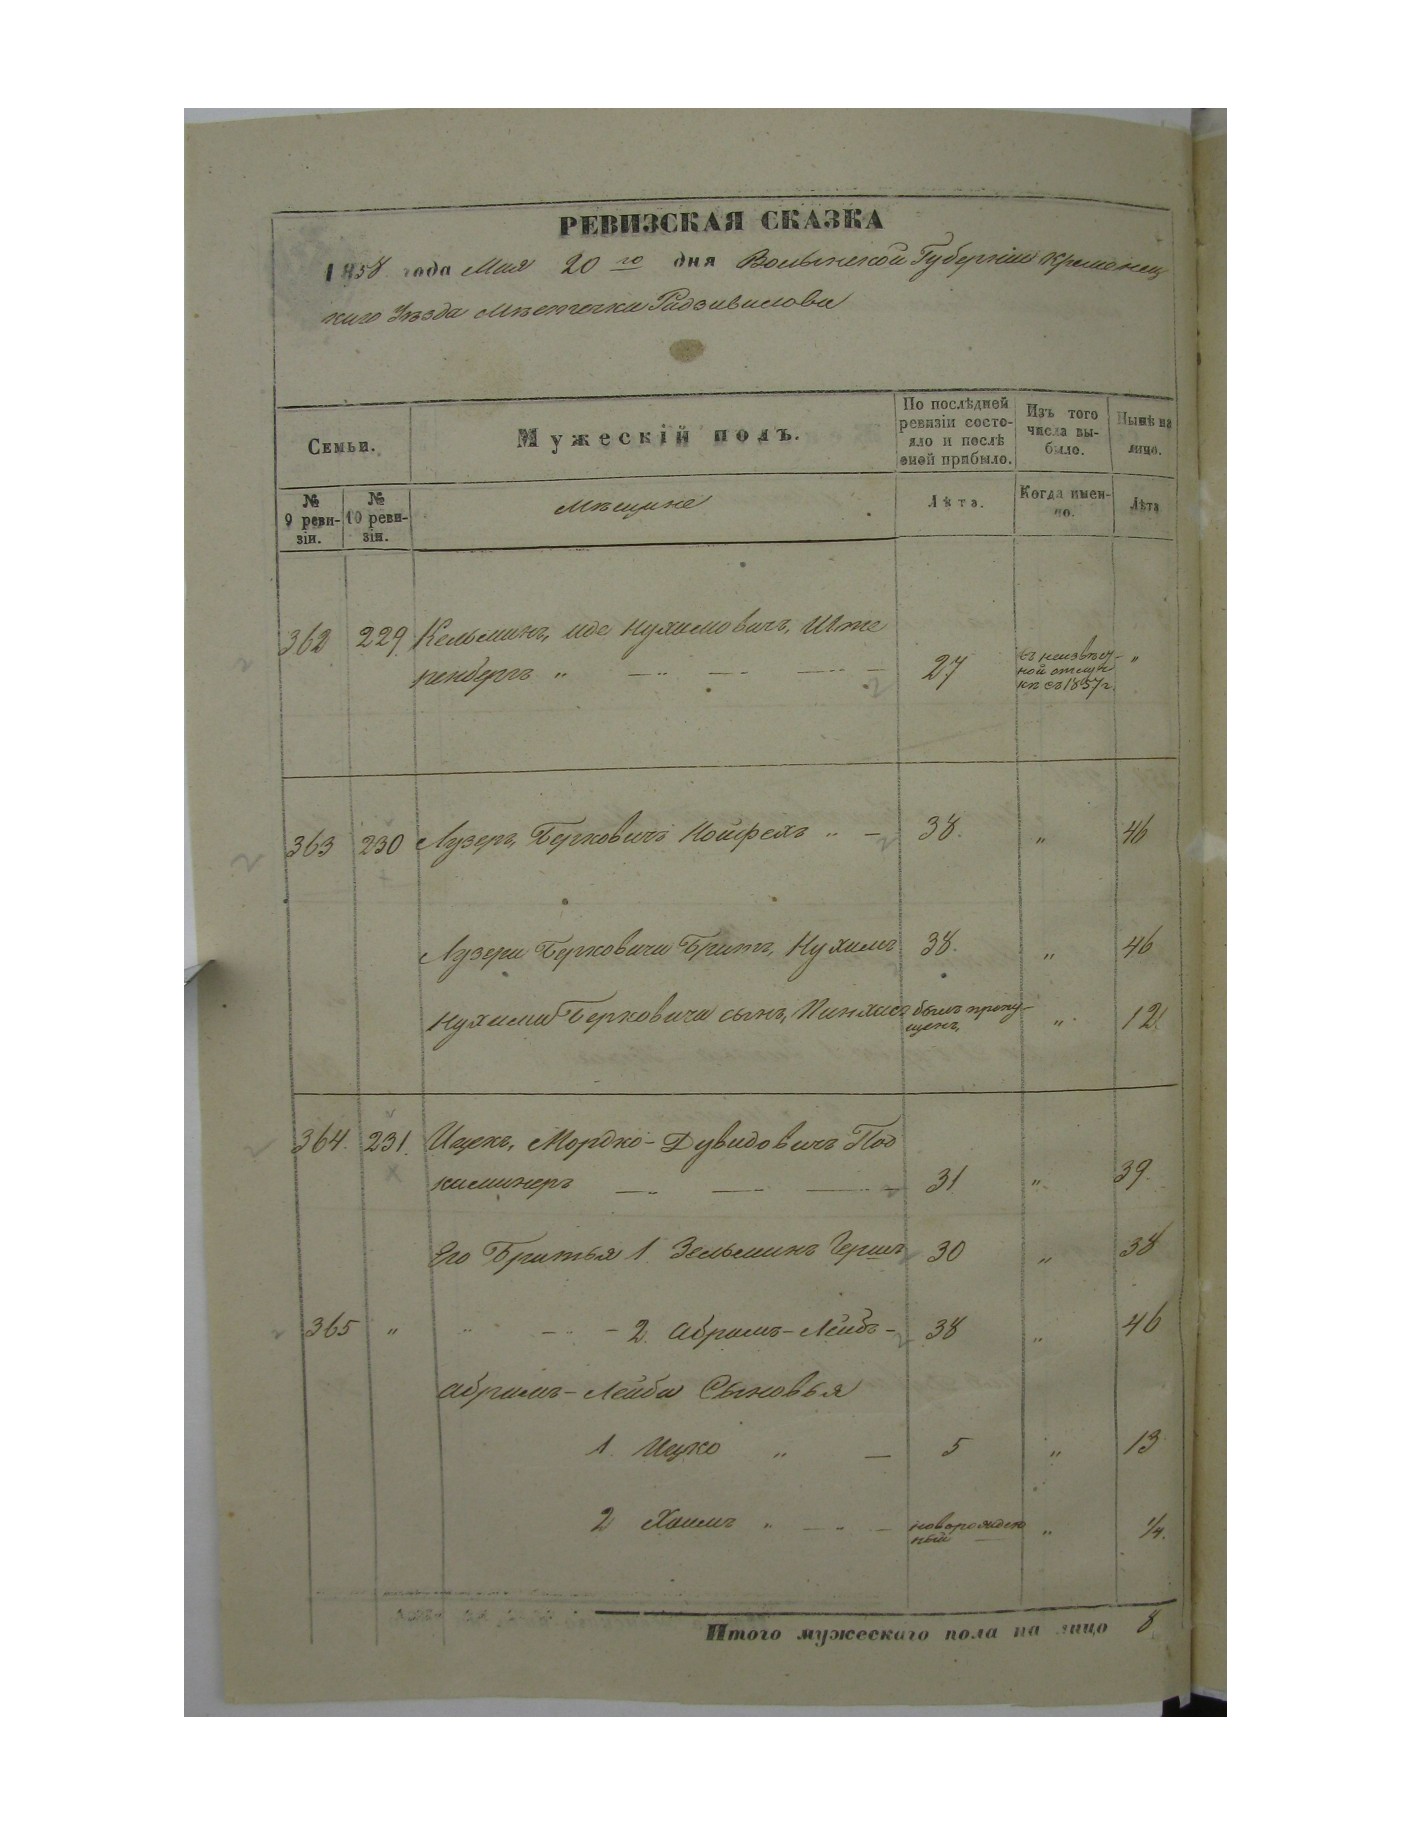 РЕВИЗСКАЯ СКАЗКА
1858 года Мая 20 го дня Волынской Губерніи Кременец
каго Уѣзда Мѣстечка Радзивилова
Семьи.
Мужескій полъ.
По послѣдней ревизіи состояло и послѣ оной прибыло.
Изъ того числа выбыло.
Нынѣ на лицо.
№ 9 ревизіи.
№ 10 ревизіи.
Мѣщане
Лѣта.
Когда именно.
Лѣта
362 229 Кельманъ, Нухимовичъ, Ште
кенбергъ „ 27 въ неизвѣст-
ной отлуч
кѣ съ 1857 г. „
363 230 Лузеръ, Берковичъ Койфехъ „ — 38. „ 46
Лузера Берковича Братъ, Нухимъ 38. „ 46
Нухима Берковича сынъ, Пинхасъ былъ пропу-
щенъ, „ 12.
364. 231. Ицекъ, Мордко-Дувидовичъ Под
каминеръ 31 „ 39.
Его Братья 1. Зельманъ Гершъ 30 „ 38
365 „ „ — 2. Абрамъ-Лейбъ - 38 „ 46
Абрамъ-Лейба Сыновья
1. Ицко „ — 5 „ 13
2 Хаимъ „ — новорожден
ный „ 1/4.
Итого мужескаго пола на лицо 8